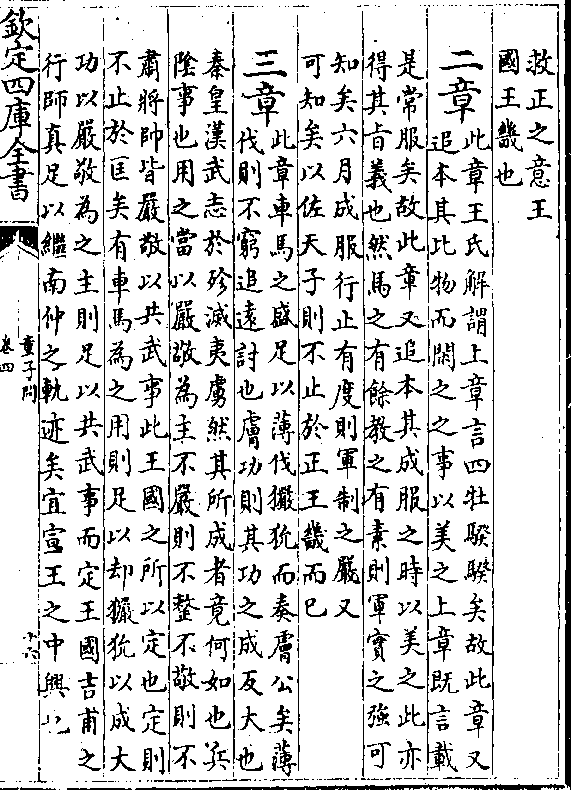 救正之意王
國王畿也
二章此章王氏解謂上章言四牡騤騤矣故此章又
追本其比物而閑之之事以美之上章既言載
是常服矣故此章又追本其成服之時以美之此亦
得其旨義也然馬之有餘教之有素則軍實之強可
知矣六月成服行止有度則軍制之嚴又
可知矣以佐天子則不止於正王畿而已
三章此章車馬之盛足以薄伐玁狁而奏膚公矣薄
伐則不窮追遠討也膚功則其功之成反大也
秦皇漢武志於殄滅夷虜然其所成者竟何如也兵
陰事也用之當以嚴敬為主不嚴則不整不敬則不
肅將帥皆嚴敬以共武事此王國之所以定也定則
不止於匡矣有車馬為之用則足以却玁狁以成大
功以嚴敬為之主則足以共武事而定王國吉甫之
行師真足以繼南仲之軌迹矣宜宣王之中興也
欽定四庫全書
童子問
卷四
十六